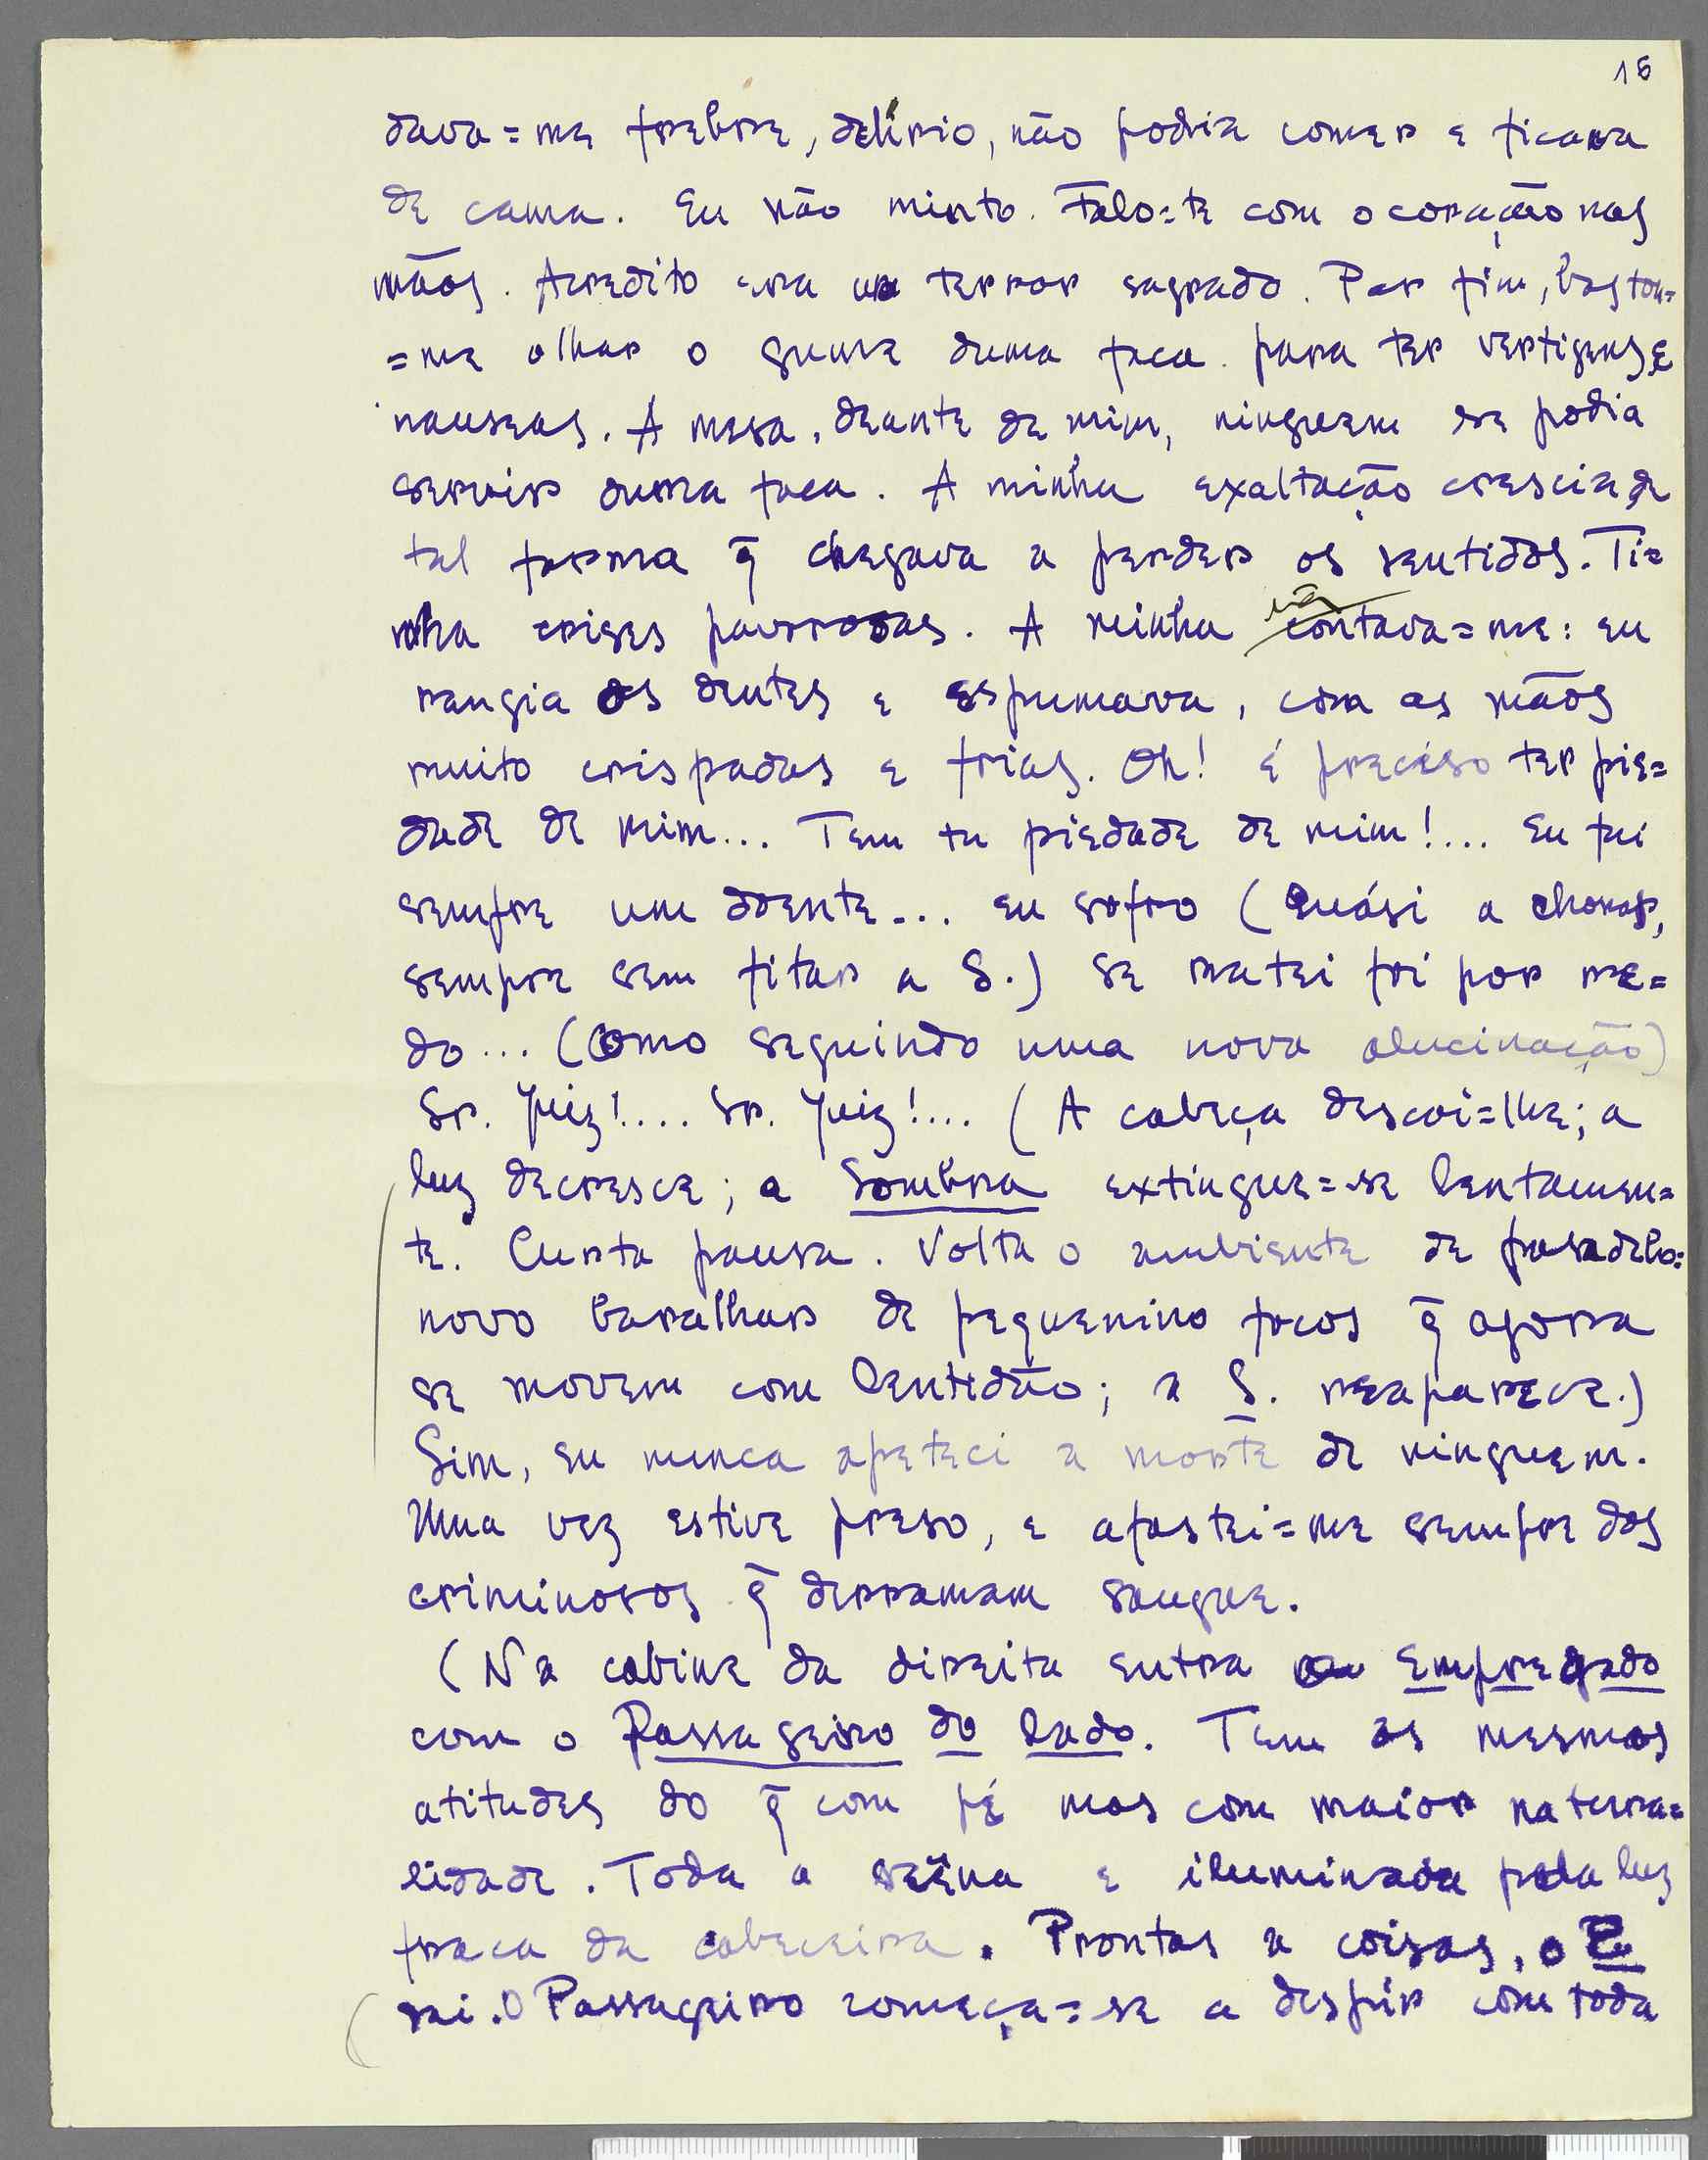 15
dava=me frebre, delírio, não podia comer e ficava
de cama. Eu não minto. Falo=te com o coração nas
mãos. Acredito era um terror sagrado. Por fim, bastou=
=me olhar o gume duma faca para ter vertigens e
nauseas. A mesa, deante de mim, ninguem se podia
servir duma faca. A minha exaltação crescia de
tal forma q̃ chegava a perder os sentidos. Ti=
nha crises pavorosas. A minha mãe contava=me: eu
rangia os dentes e espumava, com as mãos
muito crispadas e frias. Oh! é preciso ter pie=
dade de mim... Tem tu piedade de mim!... Eu fui
sempre um doente... eu sofro (Quási a chorar,
sempre sem fitar a S.) Se matei foi por me=
do... (Como seguindo uma nova alucinação)
Sr. Juiz!.... Sr. Juiz!... (A cabeça descai=lhe; a
luz decresce; a Sombra extingue=se lentamen=
te. Curta pausa. Volta o ambiente de pesadelo:
novo baralhar de pequenino focos q̃ agora
se movem com lentidão; a S. reaparece.)
Sim, eu nunca apeteci a morte de ninguem.
Uma vez estive preso, e afastei=me sempre dos
criminosos q̃ derramam sangue.
(Na cabine da direita entra o Empregado
com o Passageiro do lado. Tem as mesmas
atitudes do q̃ com PÉ mas com maior natura=
lidade. Toda a scêna e iluminada pela luz
fraca da cabeceira. Prontas a coisas, o E
sai. O Passageiro começa=se a despir com toda